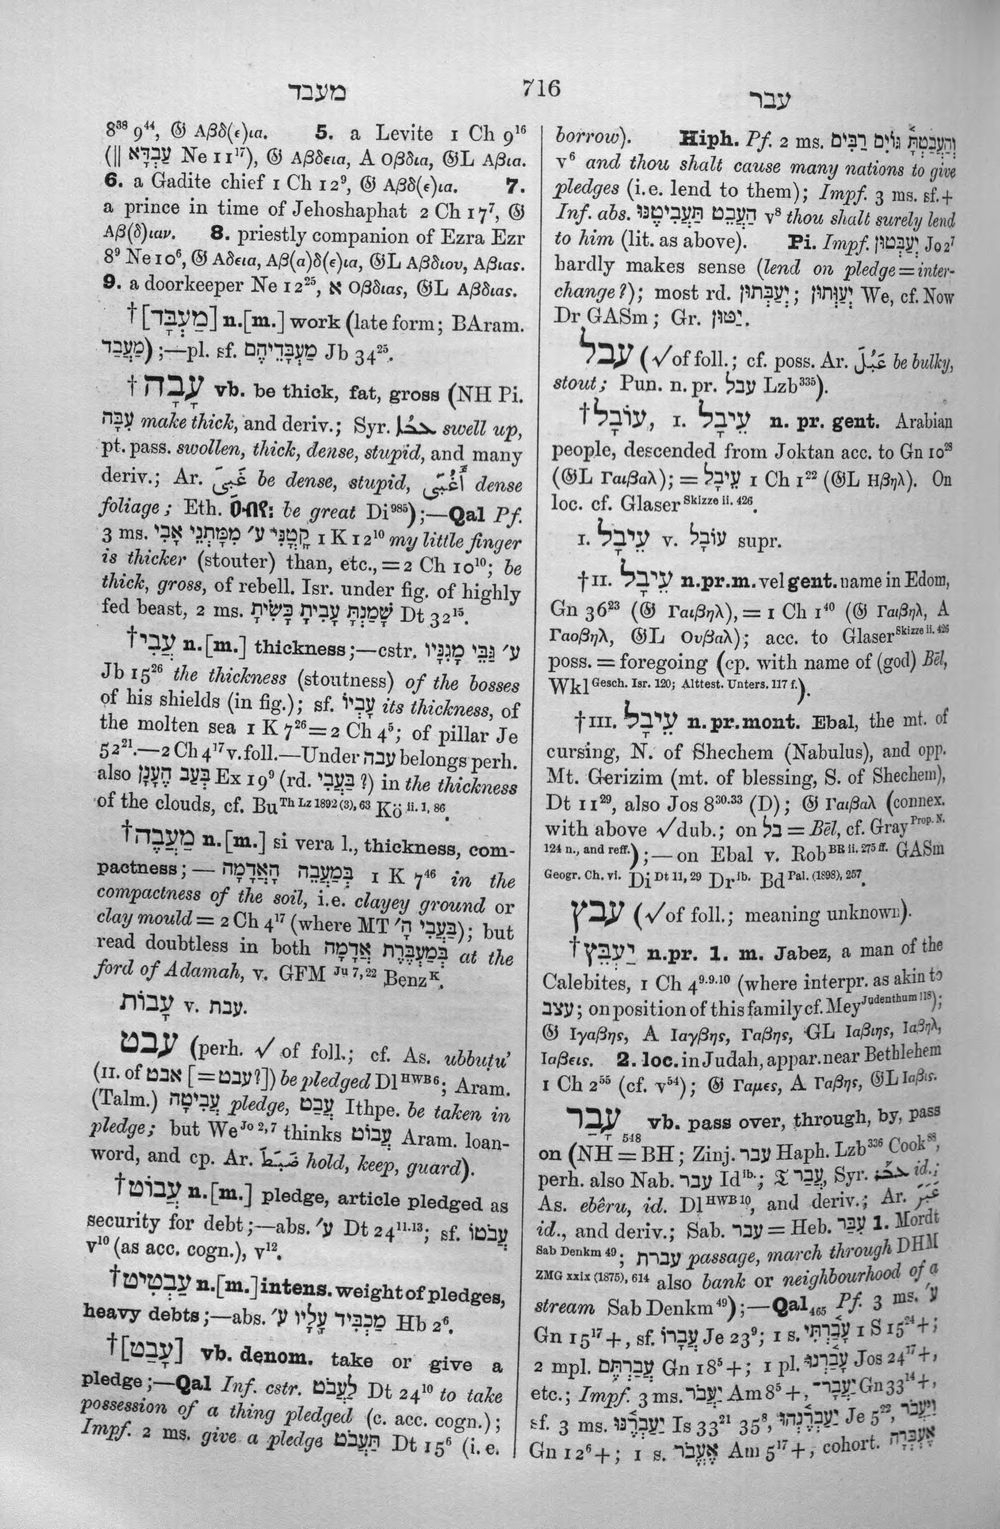 מעבד
716
עבר
8³⁸ 9⁴⁴, 𝔊 Αβδ(ε)ια. 5. a Levite 1 Ch 9¹⁶
(‖ עַבְדָּא Ne 11¹⁷), 𝔊 Αβδεια, A Οβδια, 𝔊L Αβια.
6. a Gadite chief 1 Ch 12⁹, 𝔊 Αβδ(ε)ια. 7.
a prince in time of Jehoshaphat 2 Ch 17⁷, 𝔊
Αβ(δ)ιαν. 8. priestly companion of Ezra Ezr
8⁹ Ne 10⁶, 𝔊 Αδεια, Αβ(α)δ(ε)ια, 𝔊L Αβδιου, Αβιας.
9. a doorkeeper Ne 12²⁵, א Οβδιας, 𝔊L Αβδιας.
†[מַעְבָּד] n.[m.] work (late form; BAram.
מַעֲבַד) ;—pl. sf. מַעְבָּדֵיהֶם Jb 34²⁵.
†עָבָה vb. be thick, fat, gross (NH Pi.
עִבָּה make thick, and deriv.; Syr. swell up,
pt. pass. swollen, thick, dense, stupid, and many
deriv.; Ar. غَبِىَ be dense, stupid, أَغْبَى dense
foliage; Eth. ዐብየ: be great Di⁹⁸⁵);—Qal Pf.
3 ms. קָטֳנִּי עָ׳ מִמָּתְנֵי אָבִי 1 K 12¹⁰ my little finger
is thicker (stouter) than, etc., = 2 Ch 10¹⁰; be
thick, gross, of rebell. Isr. under fig. of highly
fed beast, 2 ms. שָׁמַנְתָּ עָבִיתָ כָּשִׂיתָ Dt 32¹⁵.
†עֳבִי n.[m.] thickness;—cstr. עֳ׳ גַּבֵּי מָגִנָּיו
Jb 15²⁶ the thickness (stoutness) of the bosses
of his shields (in fig.); sf. עָבְיוֹ its thickness, of
the molten sea 1 K 7²⁶ = 2 Ch 4⁵; of pillar Je
52²¹.—2 Ch 4¹⁷ v. foll.—Under עבה belongs perh.
also בְּעַב הֶעָנָן Ex 19⁹ (rd. בַּעֲבִי ?) in the thickness
of the clouds, cf. Bu Th Lz 1892 (3), 63 Kö ii. 1, 86.
†מַעֲבֶה n.[m.] si vera l., thickness, com-
pactness;— בְּמַעֲבֵה הָאֲדָמָה 1 K 7⁴⁶ in the
compactness of the soil, i.e. clayey ground or
clay mould = 2 Ch 4¹⁷ (where MT בַּעֲבִי הָ׳); but
read doubtless in both בְּמַעְבְּרַת אֲדָמָה at the
ford of Adamah, v. GFM Ju 7, 22 Benz K.
עָבוֹת v. עבת.
עבט (perh. √ of foll.; cf. As. ubbuṭu’
(II. of אבט [= עבט?]) be pledged Dl HWB 6; Aram.
(Talm.) עֲבִיטָה pledge, עֲבַט Ithpe. be taken in
pledge; but We Jo 2, 7 thinks עֲבוֹט Aram. loan-
word, and cp. Ar. ضَبَطَ hold, keep, guard).
†עֲבוֹט n.[m.] pledge, article pledged as
security for debt;—abs. ע׳ Dt 24¹¹·¹³; sf. עֲבֹטוֹ
v¹⁰ (as acc. cogn.), v¹².
†עַבְטִיט n.[m.] intens. weight of pledges,
heavy debts;—abs. מַכְבִּיד עָלָיו ע׳ Hb 2⁶.
†[עָבַט] vb. denom. take or give a
pledge;—Qal Inf. cstr. לַעֲבֹט Dt 24¹⁰ to take
possession of a thing pledged (c. acc. cogn.);
Impf. 2 ms. give a pledge תַּעֲבֹט Dt 15⁶ (i.e.
borrow). Hiph. Pf. 2 ms. וְהַעֲבַטְתָּ גּוֹיִם רַבִּים
v⁶ and thou shalt cause many nations to give
pledges (i.e. lend to them); Impf. 3 ms. sf. +
Inf. abs. הַעֲבֵט תַּעֲבִיטֶנּוּ v⁸ thou shalt surely lend
to him (lit. as above). Pi. Impf. יְעַבְּטוּן Jo 2⁷
hardly makes sense (lend on pledge = inter-
change?); most rd. יְעַבְּתוּן; יְעַוְּתוּן We, cf. Now
Dr GASm; Gr. יִטּוּן.
עבל (√ of foll.; cf. poss. Ar. عَبُلَ be bulky,
stout; Pun. n. pr. עבל Lzb³³⁵).
†עוֹבָל, I. עֵיבָל n. pr. gent. Arabian
people, descended from Joktan acc. to Gn 10²⁸
(𝔊L Γαιβαλ); = עֵיבָל 1 Ch 1²² (𝔊L Ηβηλ). On
loc. cf. Glaser Skizze ii. 426.
I. עֵיבָל v. עוֹבָל supr.
†II. עֵיבָל n.pr.m. vel gent. name in Edom,
Gn 36²³ (𝔊 Γαιβηλ), = 1 Ch 1⁴⁰ (𝔊 Γαιβηλ, A
Γαοβηλ, 𝔊L Ουβαλ); acc. to Glaser Skizze ii. 426
poss. = foregoing (cp. with name of (god) Bēl,
Wkl Gesch. Isr. 120; Alttest. Unters. 117 f.).
†III. עֵיבָל n. pr. mont. Ebal, the mt. of
cursing, N. of Shechem (Nabulus), and opp.
Mt. Gerizim (mt. of blessing, S. of Shechem),
Dt 11²⁹, also Jos 8³⁰·³³ (D); 𝔊 Γαιβαλ (connex.
with above √ dub.; on בל = Bēl, cf. Gray Prop. N.
124 n., and reff.);—on Ebal v. Rob BR ii. 275 ff. GASm
Geogr. Ch. vi. Di Dt 11, 29 Dr ib. Bd Pal. (1898), 257.
עבץ (√ of foll.; meaning unknown).
†יַעְבֵּץ n.pr. 1. m. Jabez, a man of the
Calebites, 1 Ch 4⁹·⁹·¹⁰ (where interpr. as akin to
עצב; on position of this family cf. Mey Judenthum 118);
𝔊 Ιγαβης, A Ιαγβης, Γαβης, GL Ιαβιης, Ιαβηλ,
Ιαβεις. 2. loc. in Judah, appar. near Bethlehem
1 Ch 2⁵⁵ (cf. v⁵⁴); 𝔊 Γαμες, A Γαβης, 𝔊L Ιαβις.
עָבַר 548 vb. pass over, through, by, pass
on (NH = BH; Zinj. עבר Haph. Lzb³³⁶ Cook⁸⁸,
perh. also Nab. עבר Id ib.; 𝔗 עֲבַר, Syr. id.;
As. ebêru, id. Dl HWB 10, and deriv.; Ar. عَبَرَ
id., and deriv.; Sab. עבר = Heb. עֵבֶר 1. Mordt
Sab Denkm 49; עברת passage, march through DHM
ZMG xxix (1875), 614 also bank or neighbourhood of a
stream Sab Denkm⁴⁹);—Qal₄₆₅ Pf. 3 ms. ע׳
Gn 15¹⁷ +, sf. עֲבָרוֹ Je 23⁹; 1 s. עָבַרְתִּי 1 S 15²⁴ +;
2 mpl. עֲבַרְתֶּם Gn 18⁵ +; 1 pl. עָבַרְנוּ Jos 24¹⁷ +,
etc.; Impf. 3 ms. יַעֲבֹר Am 8⁵ +, יַעֲבָר־ Gn 33¹⁴ +,
sf. 3 ms. יַעַבְרֶנּוּ Is 33²¹ 35⁸, יַעַבְרֶנְהוּ Je 5²², וַיַּעֲבֹר
Gn 12⁶ +; 1 s. אֶעֱבֹר Am 5¹⁷ +, cohort. אֶעְבְּרָה